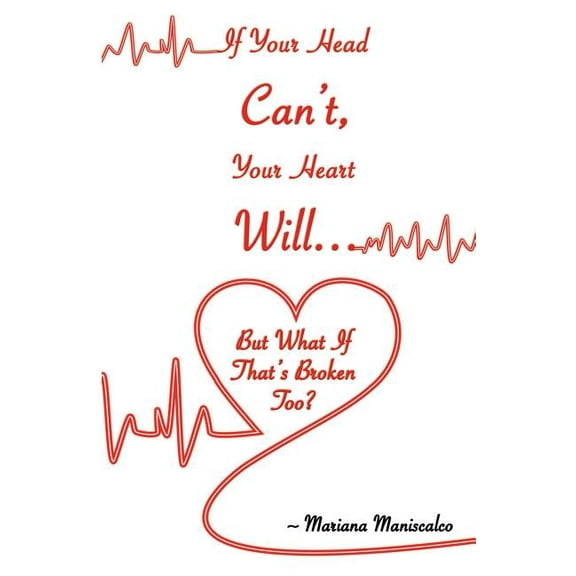 If Your Head
Can't,
Your Heart
Will...
But What If
That's Broken
Too?
~ Mariana Maniscalco